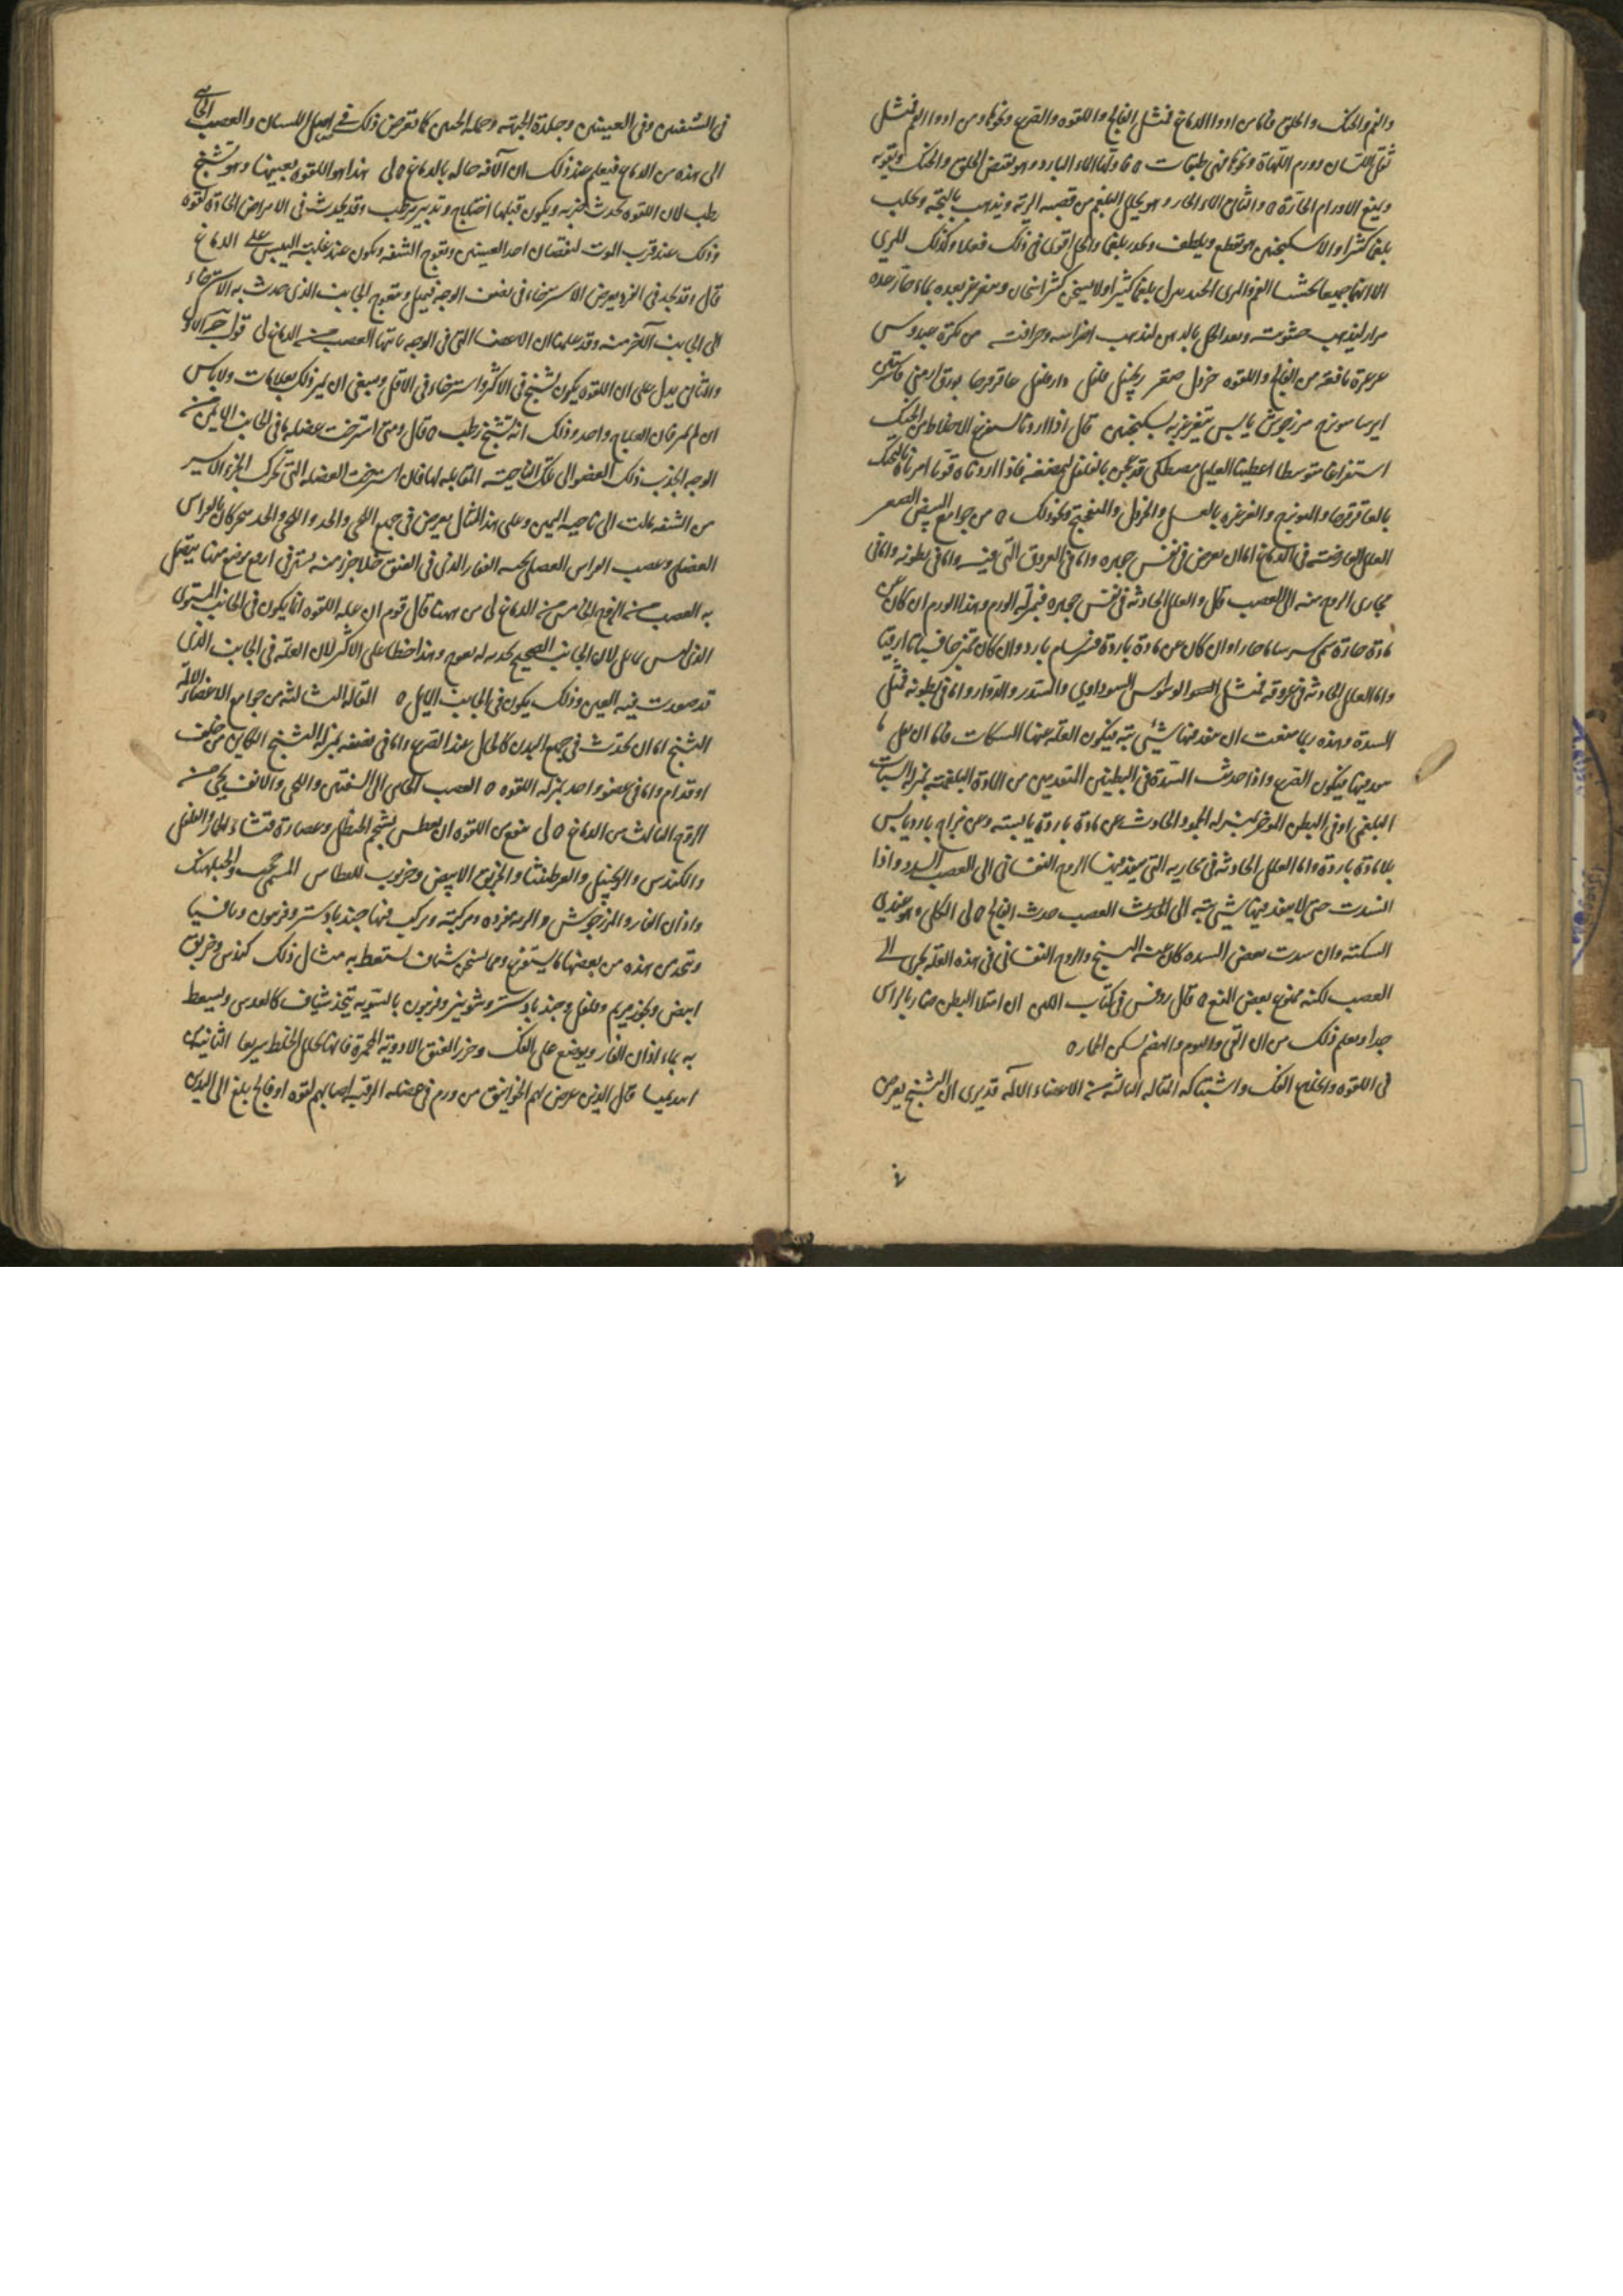 والفم والحنك والحلق فاما من ادواء الدماغ فمثل الفالج واللقوه والصرع ونحوها ومن ادواء الفم فمثل
ثقل اللسان وورم اللهاة ونحوها فهي طبقات ه فاولها الماء البارد وهو يقبض الحلق والحنك ويقويه
ويمنع الاورام الحارة ه والثاني الماء الحار وهو يحلل البلغم من قصبه الرية ويذهب بالبحة ويجلب
بلغما كثيرا والاسكنجبين هو يقطع ويلطف ويحدر بلغما والخل اقوى في ذلك فعلا وكذلك المري
الا انهما جميعا يخشنا الفم والمرى الجيد يدل بلغما كثيرا ولا يسخن كثير اسخان ويتغرغر بعده بماء حار عده
مرار ليذهب خشونته وبعد الخل بالدهن ليذهب اضراسه وحرافته من تذكرة عبدوس
غرغرة نافعة من الفالج واللقوه خردل صعتر زنجبيل فلفل دارفلفل عاقرقرحا بورق ارمني
ايرسا ميويزج مرزنجوش يابس يتغرغر به بسكنجبين قال اذا اردنا ان نستفرغ الاخلاط من الحنك
استفراغا متوسطا اعطينا العليل مصطكى قد عجن بالفلفل ليمضغه فاذا اردناه قويا امرناه بالتحنك
بالعاقرقرحا والميويزج والغرغره بالعسل والخردل والفنجج ونحو ذلك ه من جوامع النبض الصغير
العلل العارضة في الدماغ اما ان تعرض في نفس جوهره واما في العروق التي فيه واما في بطونه واما في
مجارى الروح منه الى العصب قال والعلل الحادثه في نفس جوهره فبمنزلة الورم وهذا الورم ان كان من
مادة حارة سمي سرساما حارا وان كان من مادة باردة فسرسام بارد وان كان
واما العلل الحادثه في عروقه فمثل الوسواس السوداوي والسدر والدوار واما في بطونه فمثل
السدة وهذه ربما منعت ان ينفد فيها شيء بتة فيكون العله عنها السكات فاما ان
ينفد فيها فيكون الصرع واذا حدثت السدة في البطنين المقدمين من المادة البلغمية بمنزلة السبات
البلغمي او في البطن الموخر بمنزله الجمود الحادث عن مادة باردة يابسة وعن مزاج بارد يابس
بلا مادة باردة واما العلل الحادثه في مجاريه التي ينفذ فيها الروح النفساني الى العصب السدد واذا
انسدت حتى لا ينفد فيها شيء بتة الى العصب حدث الفالج ه لى الكلي وهو عندي
السكتة وان سدت بعض السده كان عنه التشنج والروح النفساني في هذه العله يجرى الى
العصب لكنه ممنوع بعض المنع ه قال روفس في كتاب اللبن ان امتلا البطن ضار بالراس
جدا ويعلم ذلك من ان القي والنوم والهضم يسكن الخمار ه
في اللقوه وانخلاع الفك واشتباكه المقاله الثالثة من الاعضاء الالمه قد يرى ان التشنج يعرض
في الشفتين وفي العينين وجلدة الجبهة وجمله اللحيين كما تعرض ذلك في اصل اللسان والعصب الجائى
الى هذه من الدماغ فيعلم عند ذلك ان الآفه حاله بالدماغ ه لى هذا هو اللقوه بعينها وهو تشنج
رطب لان اللقوه تحدث بضربه ويكون قبلها اختلاج وتدبير مرطب وقد يحدث في الامراض الحادة لقوه
وذلك عند قرب الموت لنقصان احد العينين وتعوج الشفه ويكون عند غلبة اليبس على الدماغ
قال وقد نجد في المره يعرض الاسترخاء في نصف الوجه فيميل ويتعوج الجانب الذي حدث به الاسترخاء
الى الجانب الآخر منه وقد علمنا ان الاعضا التي في الوجه ياتيها العصب من الدماغ لى قوله
والثاني يدل على ان اللقوه يكون تشنج في الاكثر واسترخاء في الاقل وينبغي ان يميز ذلك بعلامات ولا باس
ان لم يميز فان العلاج واحد وذلك انه تشنج رطب ه قال ومتى استرخت عضله ما في الجانب الايمن من
الوجه انجذب ذلك العضو الى تلك الناحية المقابله لها فان استرخت العضله التي تحرك الجزء الايسر
من الشفه مالت الى ناحيه اليمين وعلى هذا المثال يعرض في جميع اللحى والخد واللحى والخد يتحركان بالراس
العضلى وعصب الراس العضلى
به العصب من الزوج الخامس من الدماغ لى من ههنا قال قوم ان عله اللقوه انما يكون في الجانب المستوى
الذي ليس مايل لان الجانب الصحيح يجذبه له تعوج وهذا خطا على الاكثر لان العلة في الجانب الذى
قد صغرت فيه العين وذلك يكون في الجانب المايل ه المقاله الثالثه من جوامع الاعضاء الالمه
التشنج اما ان يحدث في جميع البدن كالحال عند الصرع واما في نصفه بمنزله التشنج الكاين من خلف
او قدام واما في عضو واحد بمنزله اللقوه ه العصب الجائى الى الشفتين واللحى والانف يجي من
الزوج الثالث من الدماغ ه لى ينفع من اللقوه ان يعطس بشحم الحنظل وعصارة قثاء الحمار والفلفل
والكندس والزنجبيل والعرطنيثا والخربق الابيض وخرنوب للعطاس المسمى
واذان الفار والمرزنجوش والمره مفرده ومركبته ومركب فيها جندبادستر وفربيون وتافسيا
وتتخذ من هذه من بعضها ما يستفرغ ومما يسخن شياف يستعط به مثال ذلك كندس وخربق
ابيض وبخور مريم وفلفل وجندبادستر وشونيز وفربيون بالسوية يتخذ شياف كالعدس ويسعط
به بماء اذان الفار ويوضع على الفك وخرز العنق الادوية المحمرة فانها تحلل الخلط سريعا الثانية من
ابيديميا قال الذين عرض لهم الخوانيق من ورم في عضله الرقبه اصابهم لقوه او فالج بلغ الى اليدين